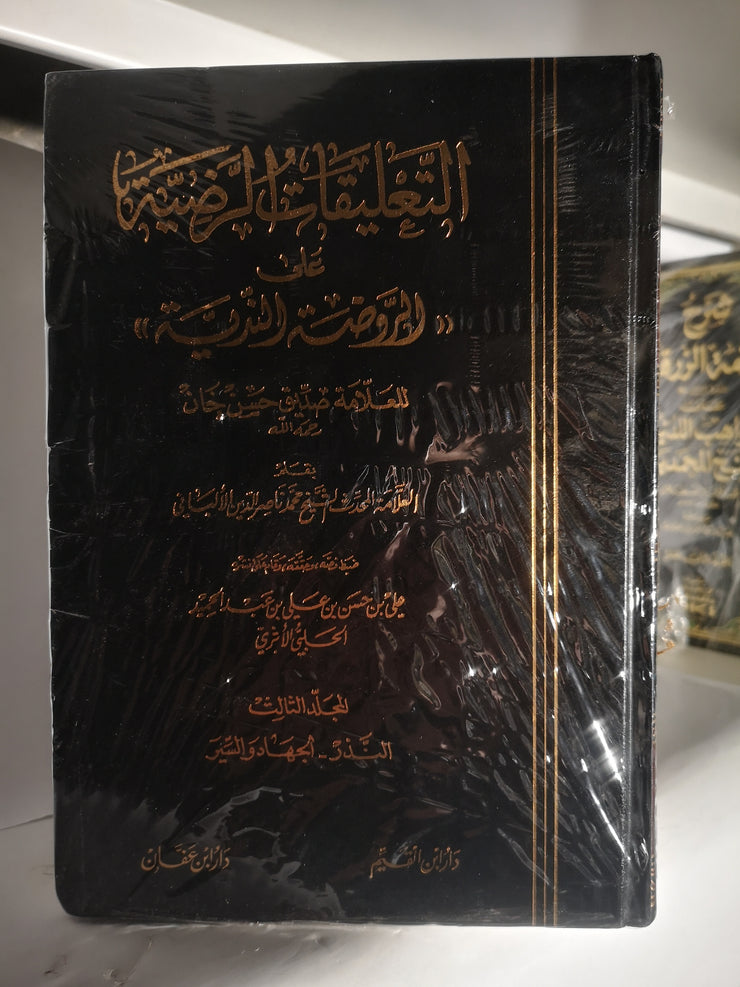 التَّعْلِيقَاتُ الرَّضِيَّة
عَلى
«الرَّوضَة النَّدِيَّة»
للعَلّامَة صِدِّيق حَسَنْ خَانْ
رحمه الله
بقلم
العلّامة المحدّث الشيخ محمّد ناصر الدين الألباني
ضبط نصّه، وحقّقه، وقام على نشره
علي بن حسن بن علي بن عبد الحميد
الحلبي الأثري
المجلّد الثالث
النَّذرْ - الجهَاد والسِّيَر
دَارُ ابن القيِّم
دَارُ ابن عَفَّان
شرح